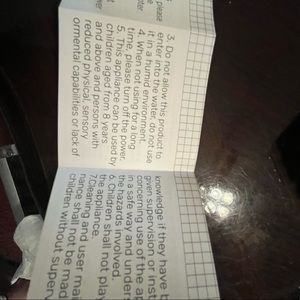 please
3. Do not allow this product to
enter into the water, do not use
it in a humid environment.
When not using for a long
time, please turn off the power.
5. This appliance can be used by
children aged from 8 years
and above and persons with
reduced physical, sensory
ormental capabilities or lack of
knowledge if they have b
given supervision or inst
concerning use of the ap
in a safe way and under
the hazards involved.
6. Children shall not pla
the appliance.
7.Cleaning and user mai
nance shall not be mad
children without superv